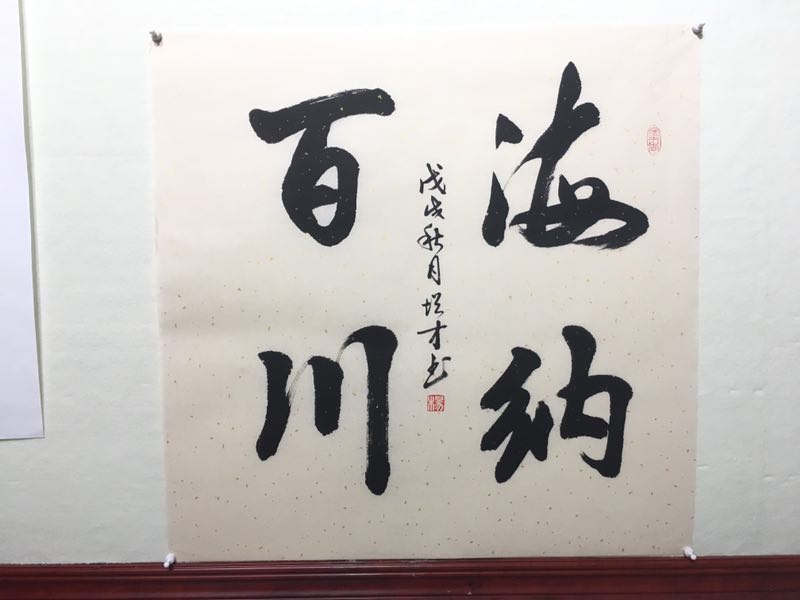 海纳
百川
戊戌秋月培才书
杨